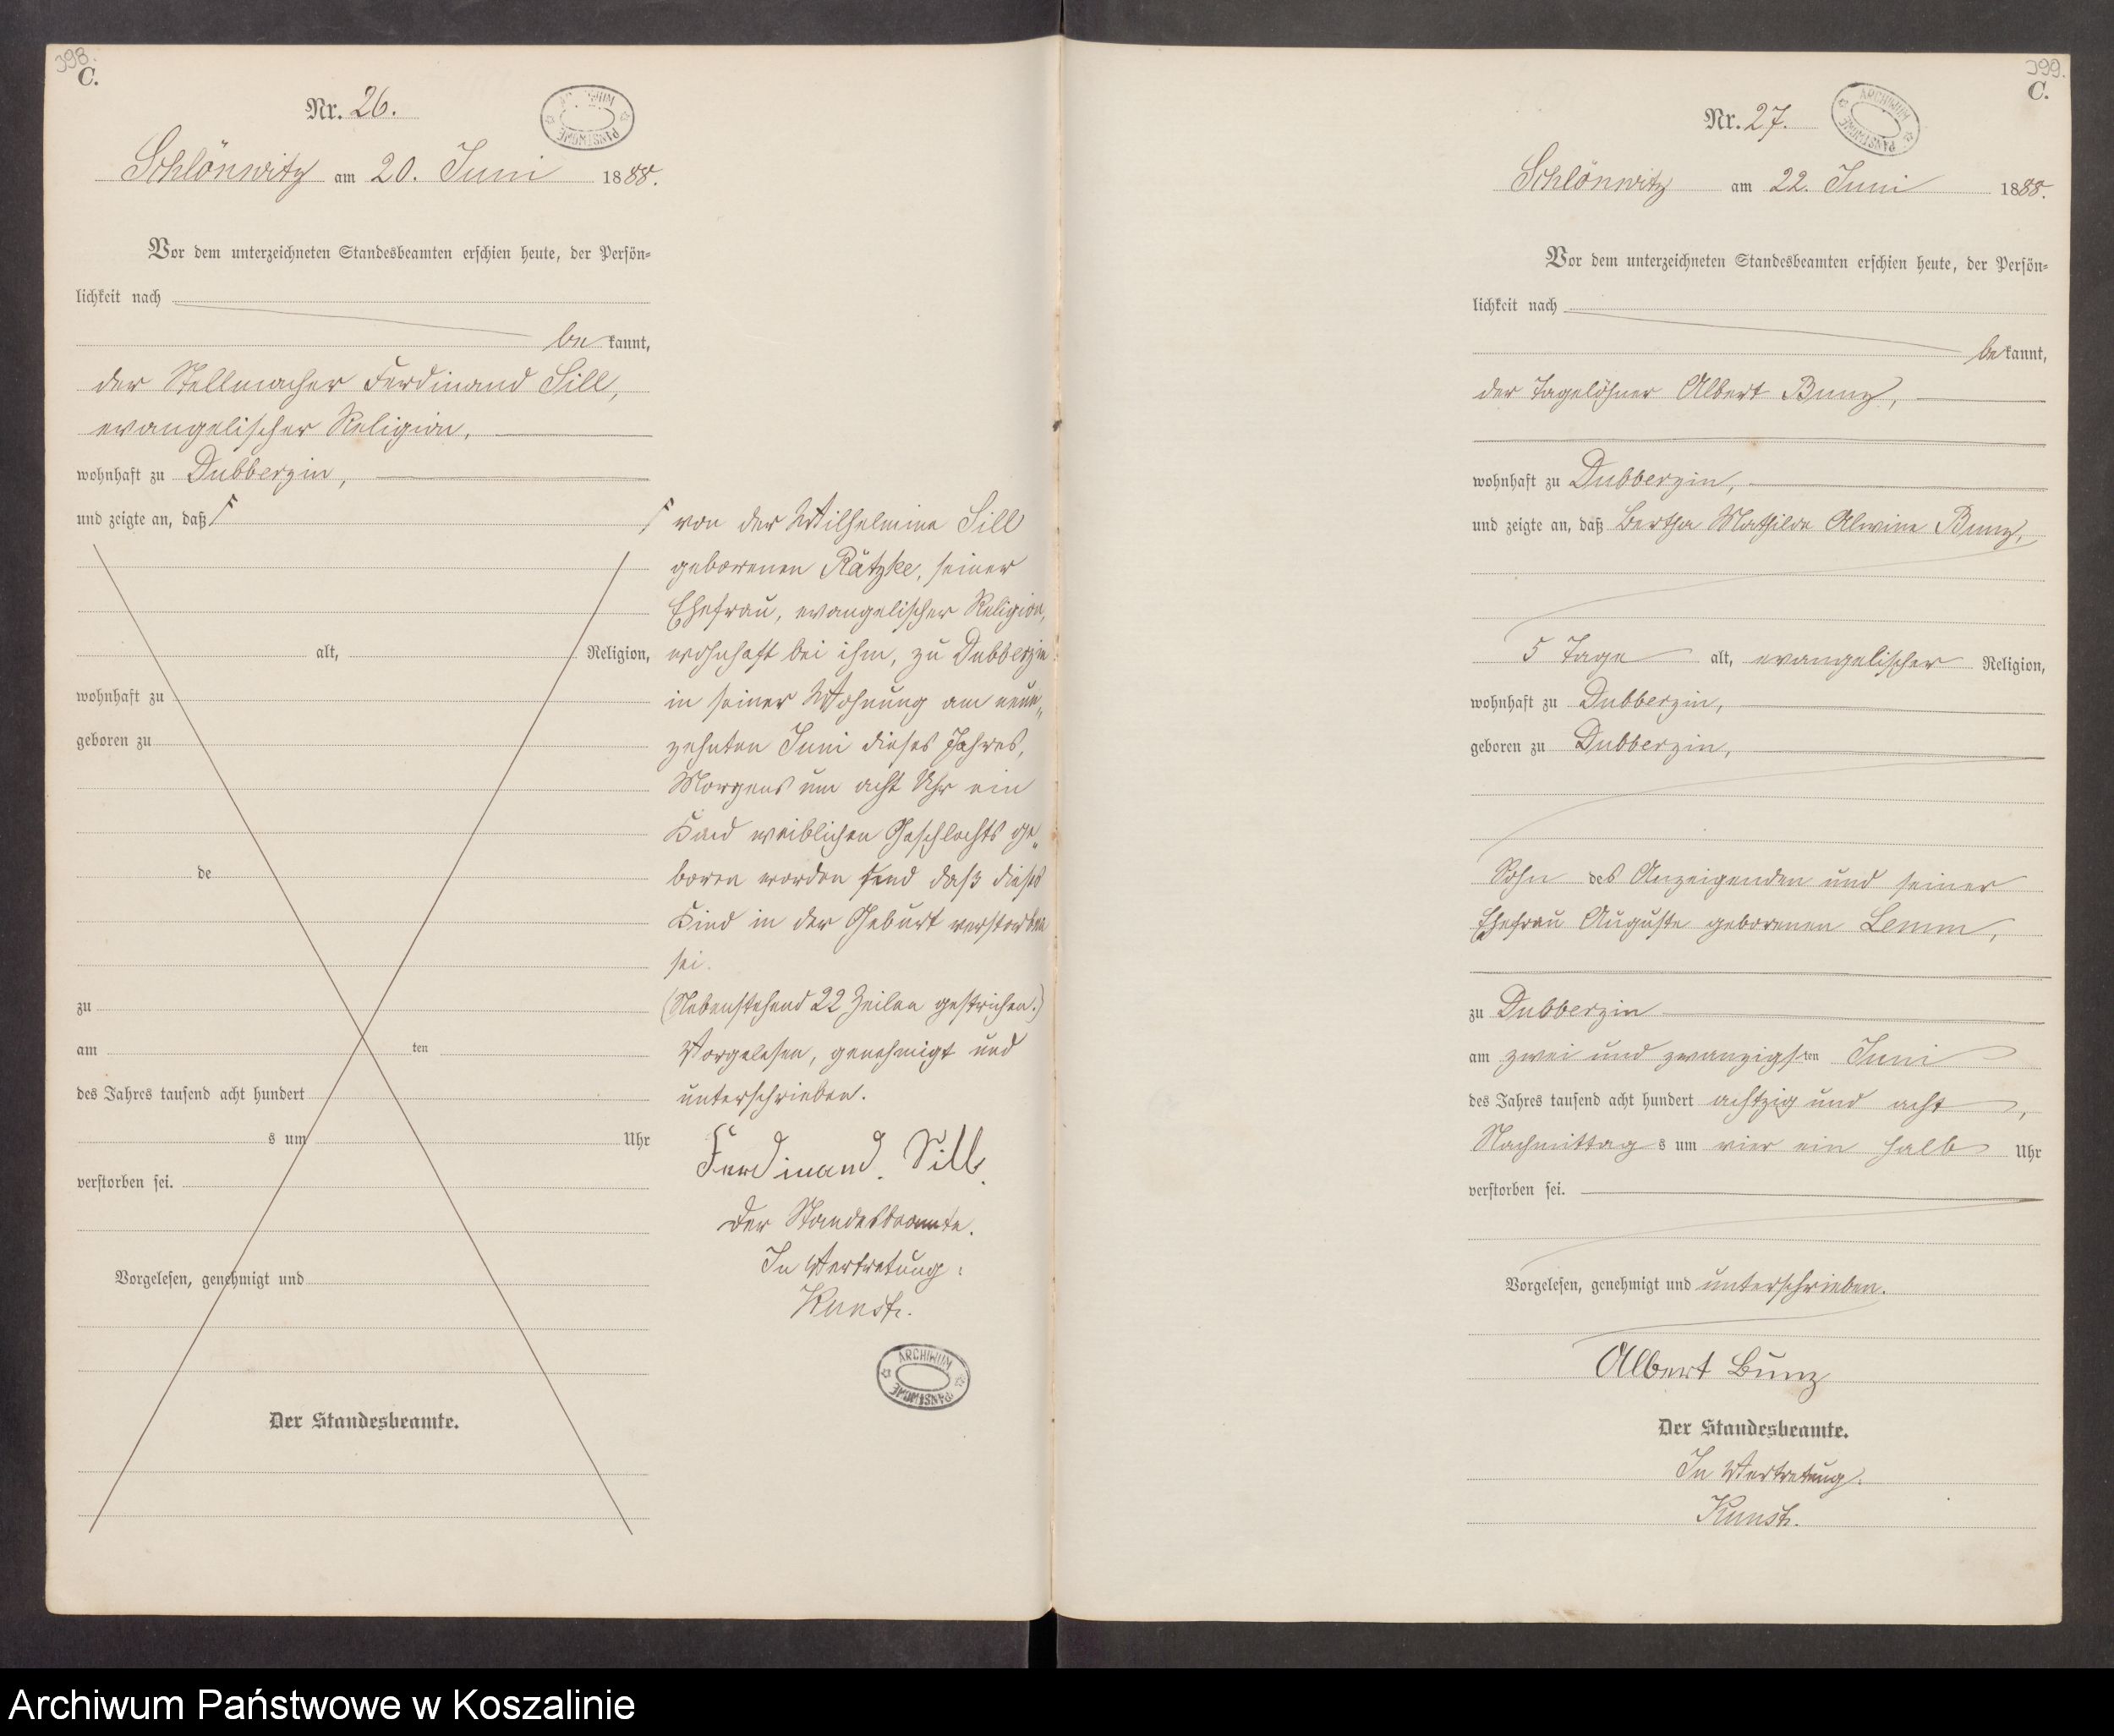 398.
C.
Nr. 26.
ARCHIWUM PAŃSTWOWE
Schlönwitz am 20. Juni 1888.
Vor dem unterzeichneten Standesbeamten erschien heute, der Persön=
lichkeit nach
be kannt,
der Stellmacher Ferdinand Sill,
evangelischer Religion,
wohnhaft zu Dubberzin,
und zeigte an, daß
alt, Religion,
wohnhaft zu
geboren zu
de
zu
am ten
des Jahres tausend acht hundert
s um Uhr
verstorben sei.
Vorgelesen, genehmigt und
Der Standesbeamte.
von der Wilhelmine Sill
geborenen Rätzke, seiner
Ehefrau, evangelischer Religion,
wohnhaft bei ihm, zu Dubberzin
in seiner Wohnung am neun„
zehnten Juni dieses Jahres,
Morgens um acht Uhr ein
Kind weiblichen Geschlechts ge„
boren worden und daß dieses
Kind in der Geburt verstorben
sei.
(Nebenstehend 22 Zeilen gestrichen.)
Vorgelesen, genehmigt und
unterschrieben.
Ferdinand. Sill.
Der Standesbeamte.
In Vertretung:
ARCHIWUM PAŃSTWOWE
399.
C.
Nr. 27.
ARCHIWUM PAŃSTWOWE
Schlönwitz am 22. Juni 1888.
Vor dem unterzeichneten Standesbeamten erschien heute, der Persön=
lichkeit nach
be kannt,
der Tagelöhner Albert Bunz,
wohnhaft zu Dubberzin,
und zeigte an, daß Bertha Mathilde Alwine Bunz,
5 Tage alt, evangelischer Religion,
wohnhaft zu Dubberzin,
geboren zu Dubberzin,
Sohn des Anzeigenden und seiner
Ehefrau Auguste geborenen Lemm,
zu Dubberzin
am zwei und zwanzigsten Juni
des Jahres tausend acht hundert achtzig und acht,
Nachmittags um vier ein halb Uhr
verstorben sei.
Vorgelesen, genehmigt und unterschrieben.
Albert Bunz
Der Standesbeamte.
In Vertretung.
Archiwum Państwowe w Koszalinie